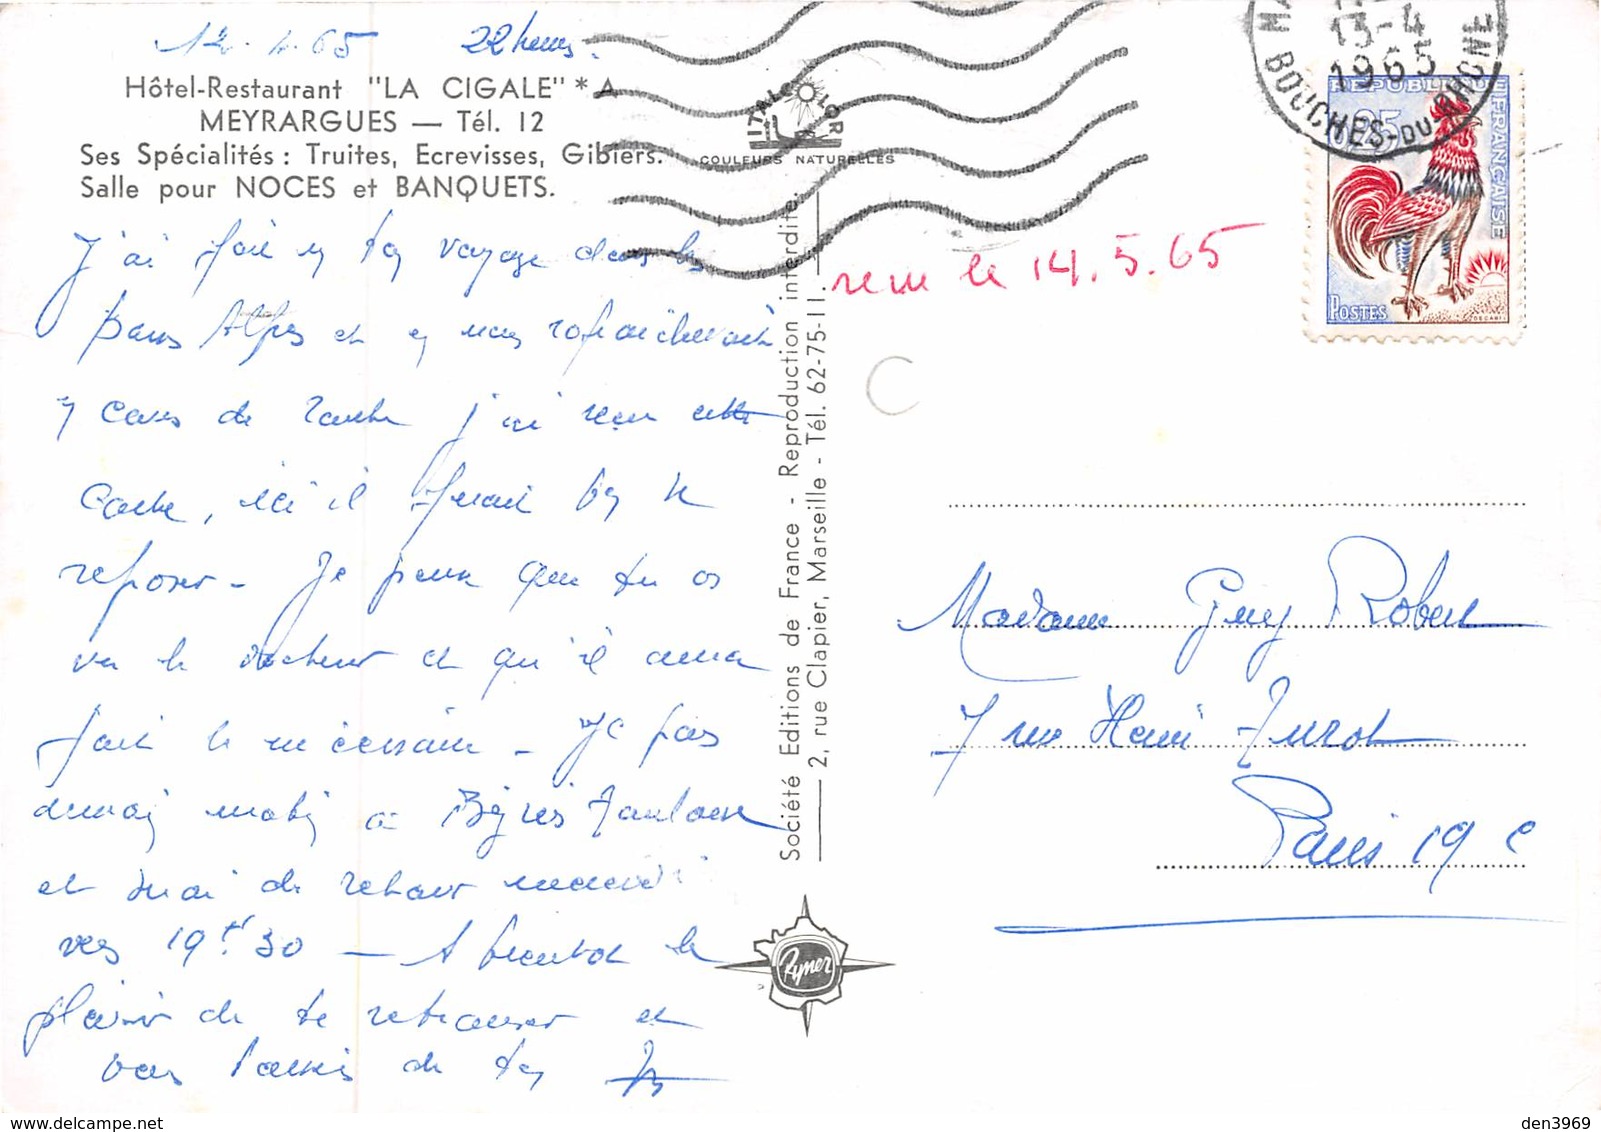 12.4.65 22 heures.
Hôtel-Restaurant "LA CIGALE" * A
MEYRARGUES — Tél. 12
Ses Spécialités : Truites, Ecrevisses, Gibiers.
Salle pour NOCES et BANQUETS.
J'ai fait un voyage dans les
Basses Alpes et en
cours de route j'ai
carte, ici il ferait bon se
reposer - Je pense que tu as
vu le docteur et qu'il aura
fait le nécessaire - Je pars
demain matin à Toulouse
et serai de retour mercredi
vers 19h30 — A bientôt le
plaisir de te retrouver et
bons baisers de ton
ITALCOLOR
COULEURS NATURELLES
Société Editions de France - Reproduction interdite.
2, rue Clapier, Marseille - Tél. 62-75-11.
Rymer
BOUCHES-DU-RHONE
13-4
1965
REPUBLIQUE FRANÇAISE
0,25
POSTES
DECARIS
le 14.5.65
C
Madame Guy Robert
7 rue Henri Turot
Paris 19e
den3969